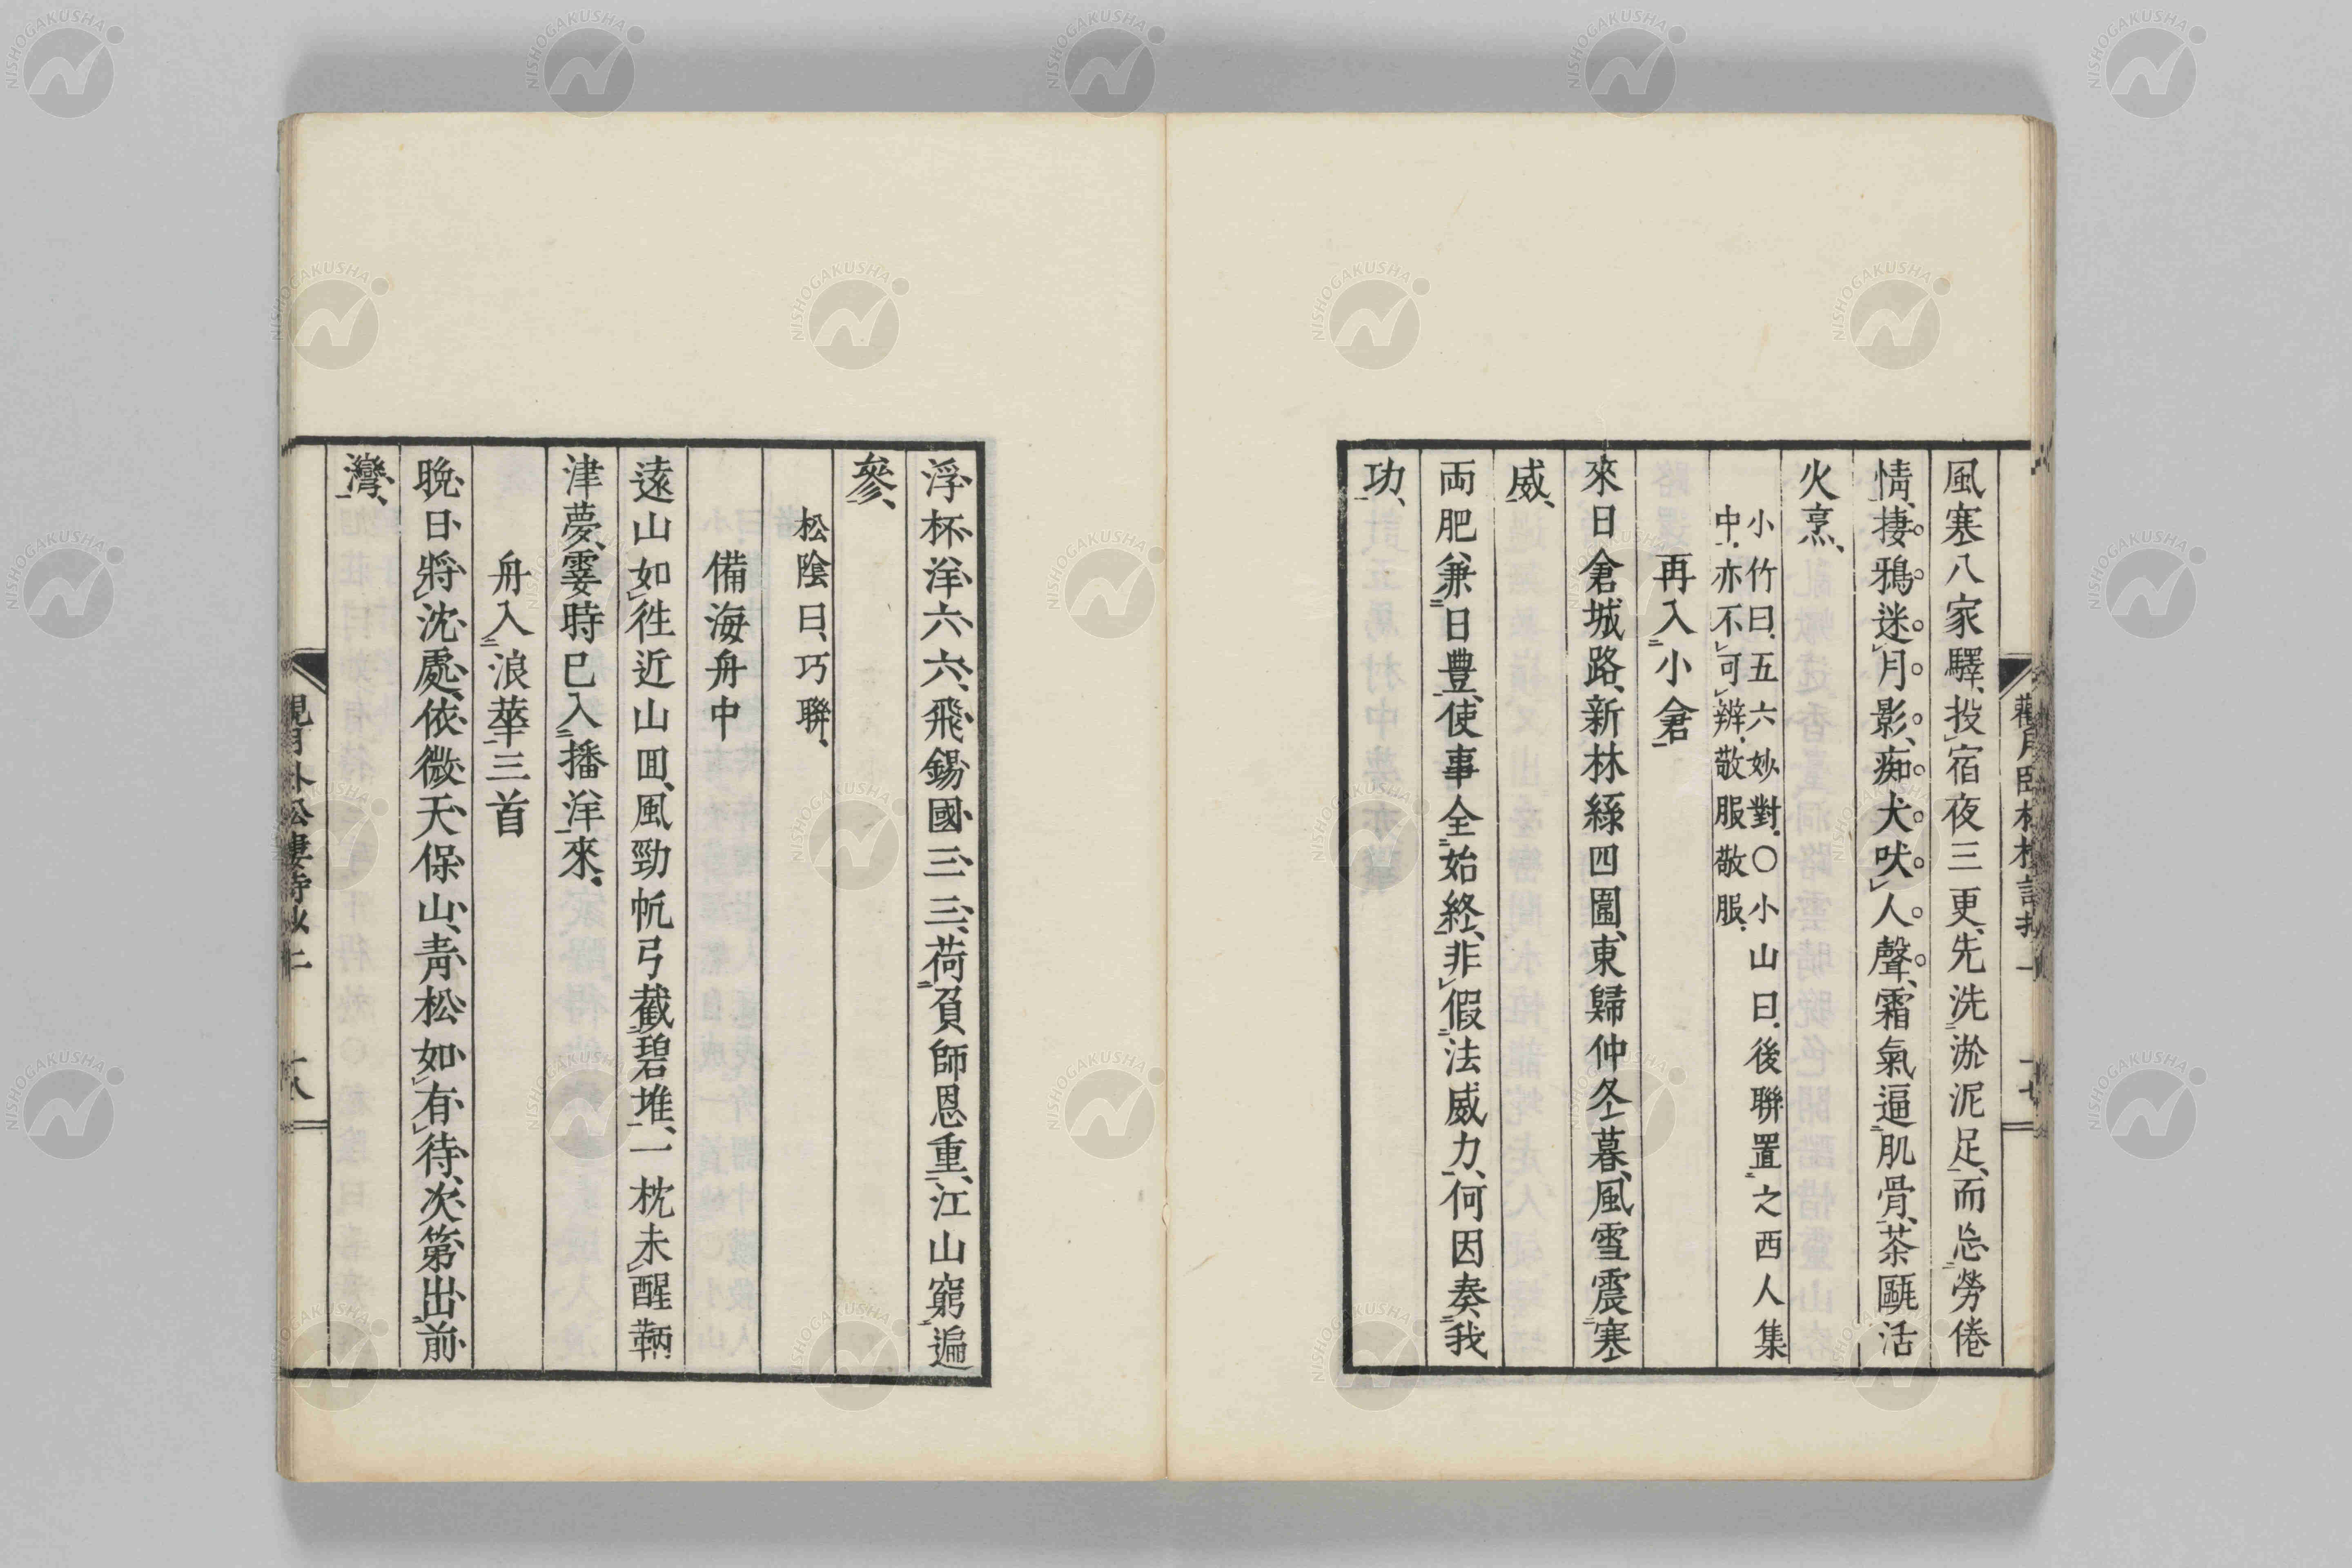 風塞八家驛投宿夜三更先洗淤泥足而忘勞倦
情棲鴉迷月影痴犬吠人聲霜氣逼肌骨茶甌活
火烹
小竹曰五六妙對○小山曰後聯置之西人集
中亦不可辨敬服敬服
再入小倉
來日倉城路新林綠四圍東歸仲冬暮風雪震塞
威
両肥兼日豊使事全始終非假法威力何因奏我
功
浮杯洋六六飛錫國三三荷負師恩重江山窮遍
參
松陰曰巧聯
備海舟中
遠山如徃近山囬風勁帆弓截碧堆一枕未醒鞆
津夢霎時已入播洋來
舟入浪華三首
晩日將沈處依微天保山青松如有待次第出前
灣
NISHOGAKUSHA